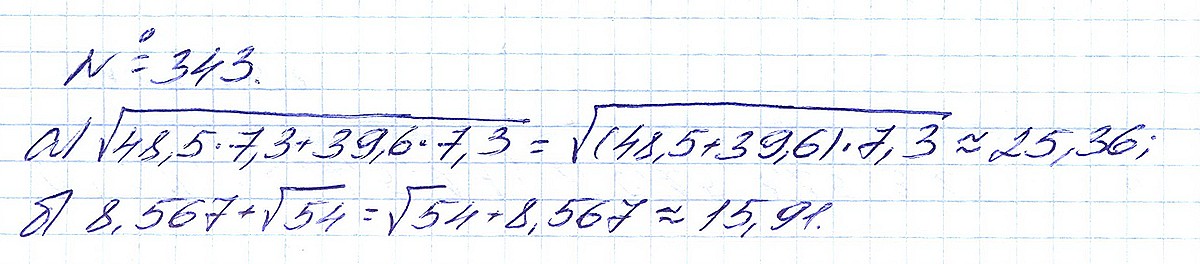 № 343.
а) √48,5·7,3+39,6·7,3 = √(48,5+39,6)·7,3 ≈ 25,36;
б) 8,567+√54 = √54+8,567 ≈ 15,91.